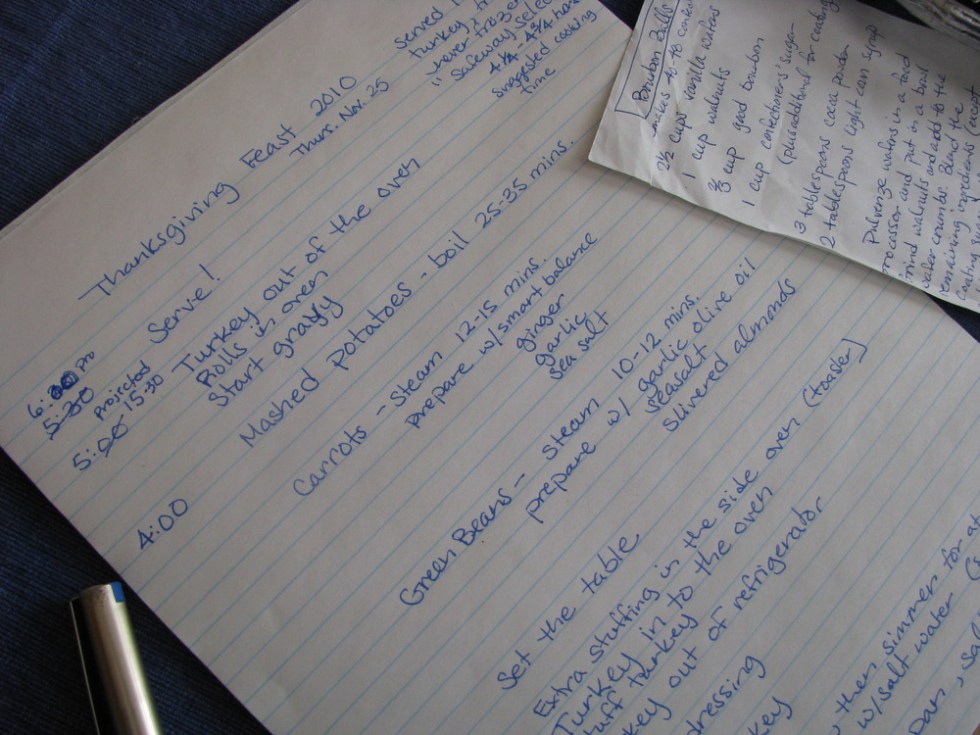 Thanksgiving Feast 2010
Thurs. Nov. 25
served
turkey
"never frozen
Safeway select
4 1/4 - 4 3/4 hours
suggested cooking
time
Serve!
5:30
projected
5:00 15:30 Turkey out of the oven
Rolls in oven
Start gravy
Mashed potatoes - boil 25-35 mins.
4:00
Carrots - Steam 12-15 mins.
prepare w/smart balance
ginger
garlic
sea salt
Green Beans - steam 10-12 mins.
prepare w/ garlic olive oil
seasalt
slivered almonds
Set the table
Extra stuffing in the side oven (toaster)
Turkey in to the oven
stuff turkey
key out of refrigerator
dressing
key
then simmer for a
w/salt water
pan, sal
Bourbon Balls
makes 40
2 1/2 cups vanilla wafers
1 cup walnuts
2/3 cup good bourbon
1 cup confectioners' sugar
(plus additional for coating
3 tablespoons cocoa powder
2 tablespoons light corn syrup
Pulverize wafers in a food
processor and put in a bowl
grind walnuts and add to the
wafer crumbs. Blend the
remaining ingredients